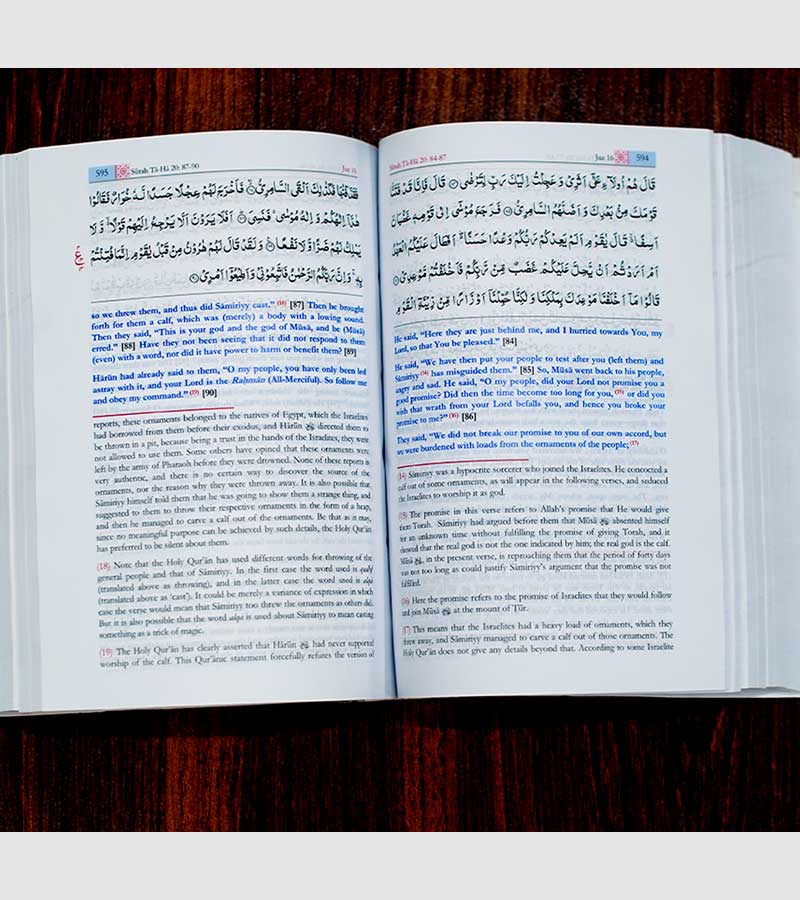 Sūrah Tā-Hā 20: 84-87 Juz 16 594
قَالَ هُمْ اُولَآءِ عَلٰٓى اَثَرِىْ وَ عَجِلْتُ اِلَيْكَ رَبِّ لِتَرْضٰى ﴿۸۴﴾ قَالَ فَاِنَّا قَدْ فَتَنَّا
قَوْمَكَ مِنْۢ بَعْدِكَ وَ اَضَلَّهُمُ السَّامِرِىُّ ﴿۸۵﴾ فَرَجَعَ مُوْسٰٓى اِلٰى قَوْمِهٖ غَضْبَانَ
اَسِفًا ۚ قَالَ يٰقَوْمِ اَلَمْ يَعِدْكُمْ رَبُّكُمْ وَعْدًا حَسَنًا ۬ؕ اَفَطَالَ عَلَيْكُمُ الْعَهْدُ
اَمْ اَرَدْتُّمْ اَنْ يَّحِلَّ عَلَيْكُمْ غَضَبٌ مِّنْ رَّبِّكُمْ فَاَخْلَفْتُمْ مَّوْعِدِىْ ﴿۸۶﴾
قَالُوْا مَآ اَخْلَفْنَا مَوْعِدَكَ بِمَلْكِنَا وَ لٰكِنَّا حُمِّلْنَآ اَوْزَارًا مِّنْ زِيْنَةِ الْقَوْمِ
He said, “Here they are just behind me, and I hurried towards You, my
Lord, so that You be pleased.” [84]
He said, “We have then put your people to test after you (left them) and
Sāmiriyy (14) has misguided them.” [85] So, Mūsā went back to his people,
angry and sad. He said, “O my people, did your Lord not promise you a
good promise? Did then the time become too long for you, (15) or did you
wish that wrath from your Lord befalls you, and hence you broke your
promise to me?” (16) [86]
They said, “We did not break our promise to you of our own accord, but
we were burdened with loads from the ornaments of the people; (17)
(14) Sāmiriyy was a hypocrite sorcerer who joined the Israelites. He concocted a
calf out of some ornaments, as will appear in the following verses, and seduced
the Israelites to worship it as god.
(15) The promise in this verse refers to Allah’s promise that He would give
them Torah. Sāmiriyy had argued before them that Mūsā absented himself
for an unknown time without fulfilling the promise of giving Torah, and it
showed that the real god is not the one indicated by him; the real god is the calf.
Mūsā, in the present verse, is reproaching them that the period of forty days
was not too long as could justify Sāmiriy’s argument that the promise was not
fulfilled.
(16) Here the promise refers to the promise of Israelites that they would follow
and join Mūsā at the mount of Tūr.
(17) This means that the Israelites had a heavy load of ornaments, which they
threw away, and Sāmiriyy managed to carve a calf out of those ornaments. The
Holy Qur’ān does not give any details beyond that. According to some Israelite
595 Sūrah Tā-Hā 20: 87-90 Juz 16
فَقَذَفْنٰهَا فَكَذٰلِكَ اَلْقَى السَّامِرِىُّ ﴿۸۷﴾ فَاَخْرَجَ لَهُمْ عِجْلًا جَسَدًا لَّهٗ خُوَارٌ فَقَالُوْا
هٰذَآ اِلٰهُكُمْ وَ اِلٰهُ مُوْسٰى ۬ فَنَسِىَ ﴿۸۸﴾ اَفَلَا يَرَوْنَ اَلَّا يَرْجِعُ اِلَيْهِمْ قَوْلًا ۬ۙ وَّ لَا
يَمْلِكُ لَهُمْ ضَرًّا وَّ لَا نَفْعًا ﴿۸۹﴾ وَ لَقَدْ قَالَ لَهُمْ هٰرُوْنُ مِنْ قَبْلُ يٰقَوْمِ اِنَّمَا فُتِنْتُمْ
بِهٖ ۚ وَ اِنَّ رَبَّكُمُ الرَّحْمٰنُ فَاتَّبِعُوْنِىْ وَ اَطِيْعُوْٓا اَمْرِىْ ﴿۹۰﴾
so we threw them, and thus did Sāmiriyy cast.” (18) [87] Then he brought
forth for them a calf, which was (merely) a body with a lowing sound.
Then they said, “This is your god and the god of Mūsā, and he (Mūsā)
erred.” [88] Have they not been seeing that it did not respond to them
(even) with a word, nor did it have power to harm or benefit them? [89]
Hārūn had already said to them, “O my people, you have only been led
astray with it, and your Lord is the Rahmān (All-Merciful). So follow me
and obey my command.” (19) [90]
reports, these ornaments belonged to the natives of Egypt, which the Israelites
had borrowed from them before their exodus, and Hārūn directed them to
be thrown in a pit, because being a trust in the hands of the Israelites, they were
not allowed to use them. Some others have opined that these ornaments were
left by the army of Pharaoh before they were drowned. None of these reports is
very authentic, and there is no certain way to discover the source of the
ornaments, nor the reason why they were thrown away. It is also possible that
Sāmiriyy himself told them that he was going to show them a strange thing, and
suggested to them to throw their respective ornaments in the form of a heap,
and then he managed to carve a calf out of the ornaments. Be that as it may,
since no meaningful purpose can be achieved by such details, the Holy Qur’ān
has preferred to be silent about them.
(18) Note that the Holy Qur’ān has used different words for throwing of the
general people and that of Sāmiriyy. In the first case the word used is
(translated above as throwing), and in the latter case the word used is
(translated above as ‘cast’). It could be merely a variance of expression in which
case the verse would mean that Sāmiriyy too threw the ornaments as others did.
But it is also possible that the word is used about Sāmiriyy to mean casting
something as a trick of magic.
(19) The Holy Qur’ān has clearly asserted that Hārūn had never supported
worship of the calf. This Qur’ānic statement forcefully refutes the version of